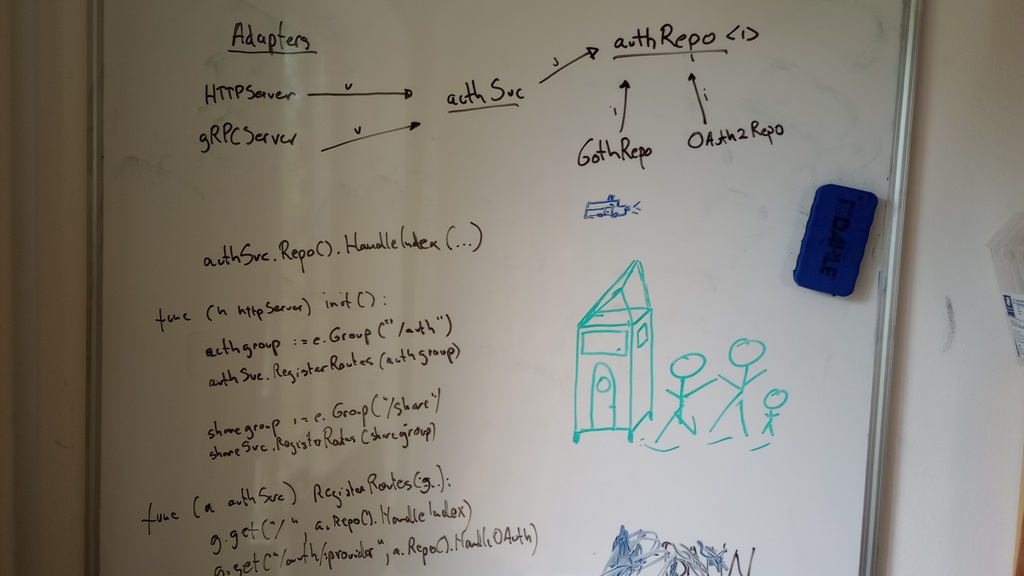 Adapters
HTTPServer
v
gRPCServer
v
authSvc
authRepo <I>
i
GothRepo
i
OAuth2Repo
authSvc.Repo().HandleIndex (...)
func (h httpServer) init():
authgroup := e.Group("/auth")
authSvc.RegisterRoutes(authgroup)
sharegroup := e.Group("/share")
shareSvc.RegisterRoutes(sharegroup)
func (a authSvc) RegisterRoutes(g.):
g.get("/", a.Repo().HandleIndex)
g.get("/auth/:provider", a.Repo().HandleOAuth)